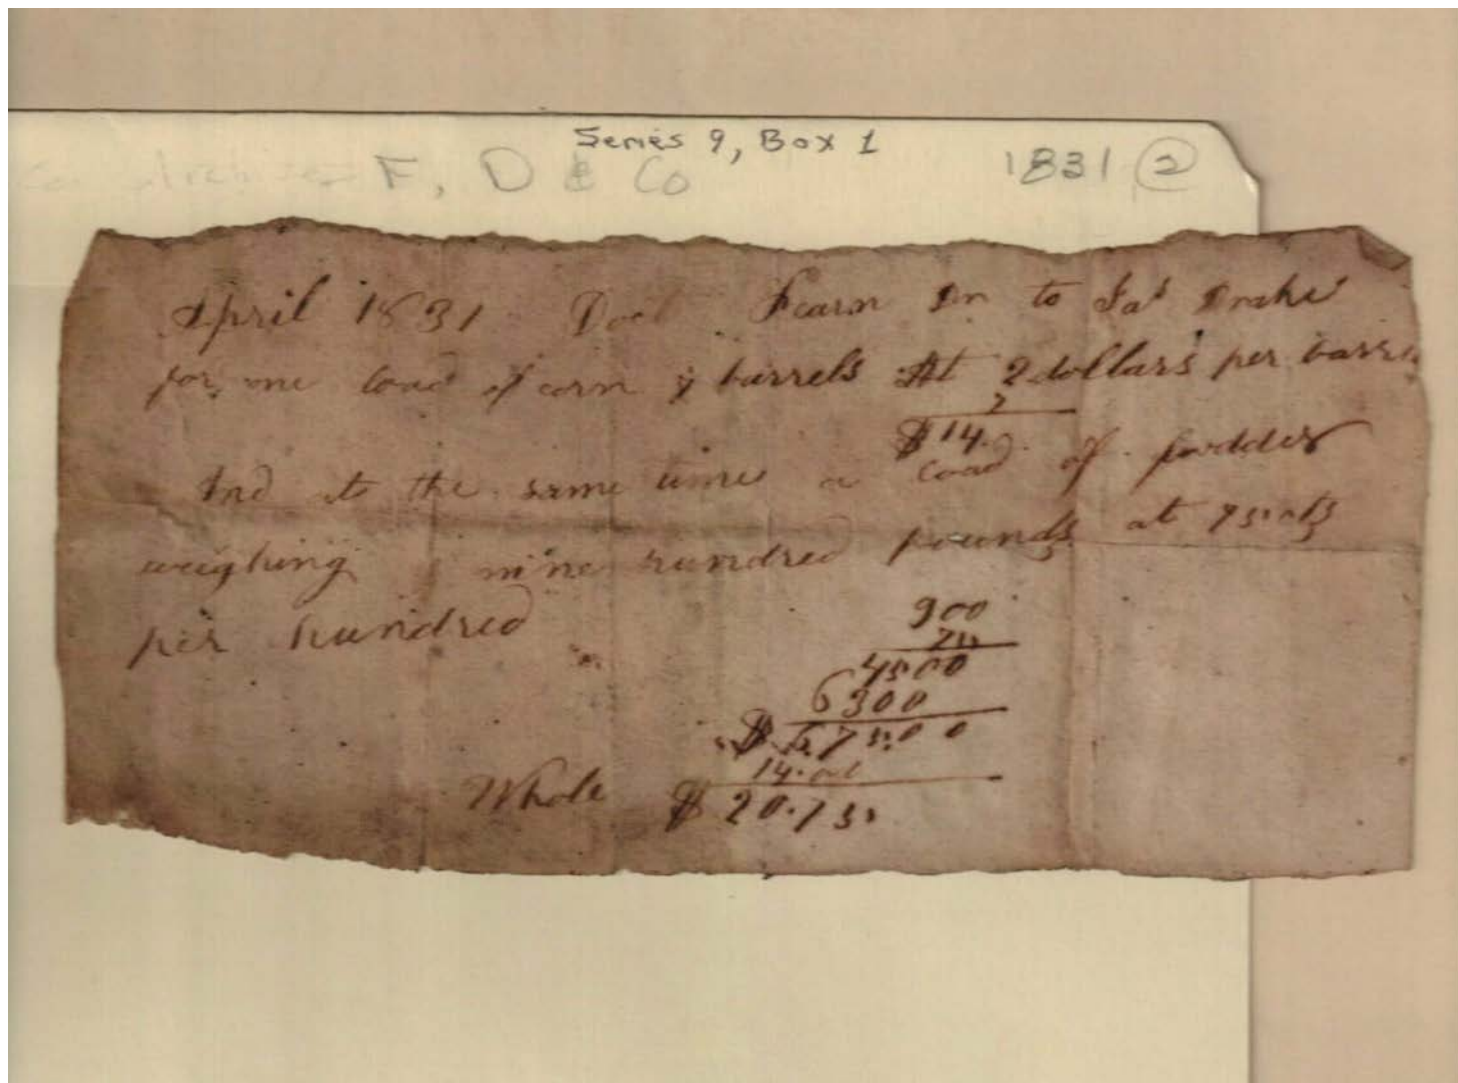 Series 9, Box 1
F, D & Co
1831 2
April 1831 Doct Fearn Dr to Jas Drake
for one load of corn 7 barrels At 2 dollars per barrel
7
$14.
And at the same time a load of fodder
weighing nine hundred pounds at 75 cts
per hundred
900
75
4500
6300
$ 6.75.00
14.00
Whole $ 20.75